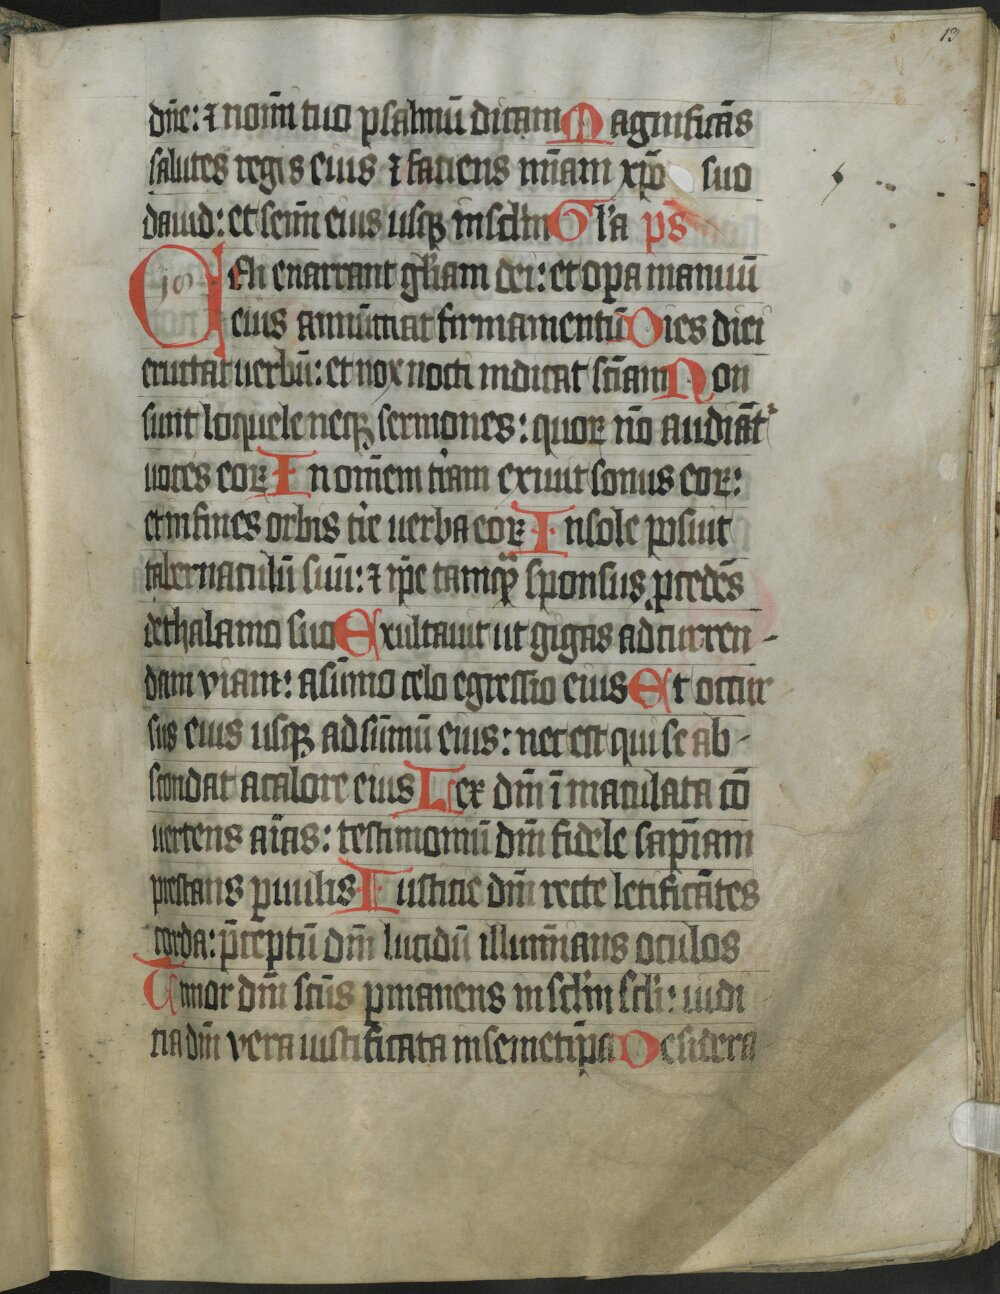 13
dn̄e: ⁊ noīni tuo psalmū dicam Magnificās
salutes regis eius ⁊ faciens mīam xp̄o suo
dauid: et semī eius usqꝫ in sc̄lm Gl'a ps̄
19
Celi enarrant gl'iam dei: et oꝑa manuū
eius annūtiat firmamentū Dies diei
eructat uerbū: et nox nocti indicat sc̄iam Non
sunt loquele neqꝫ sermones: quoꝝ nō audiāt᷑
uoces eoꝝ In om̄em t'ram exiuit sonus eoꝝ:
et in fines orbis t're uerba eoꝝ In sole posuit
tabernaculū suū: ⁊ ip̄e tamqͣꝫ sponsus ꝓcedēs
de thalamo suo Exultauit ut gigas ad curren-
dam viam: a sūmo celo egressio eius Et occur
sus eius usqꝫ ad sūmū eius: nec est qui se ab-
scondat a calore eius Lex dn̄i īmaculata cō
uertens aīas: testimoniū dn̄i fidele sapīam
prestans ꝑuulis Iusticie dn̄i recte letificātes
corda: p̄ceptū dn̄i lucidū illumīans oculos
Timor dn̄i sc̄us ꝑmanens in sc̄lm sc̄li: iudi
cia dn̄i vera iustificata in semetip̄a Desidera